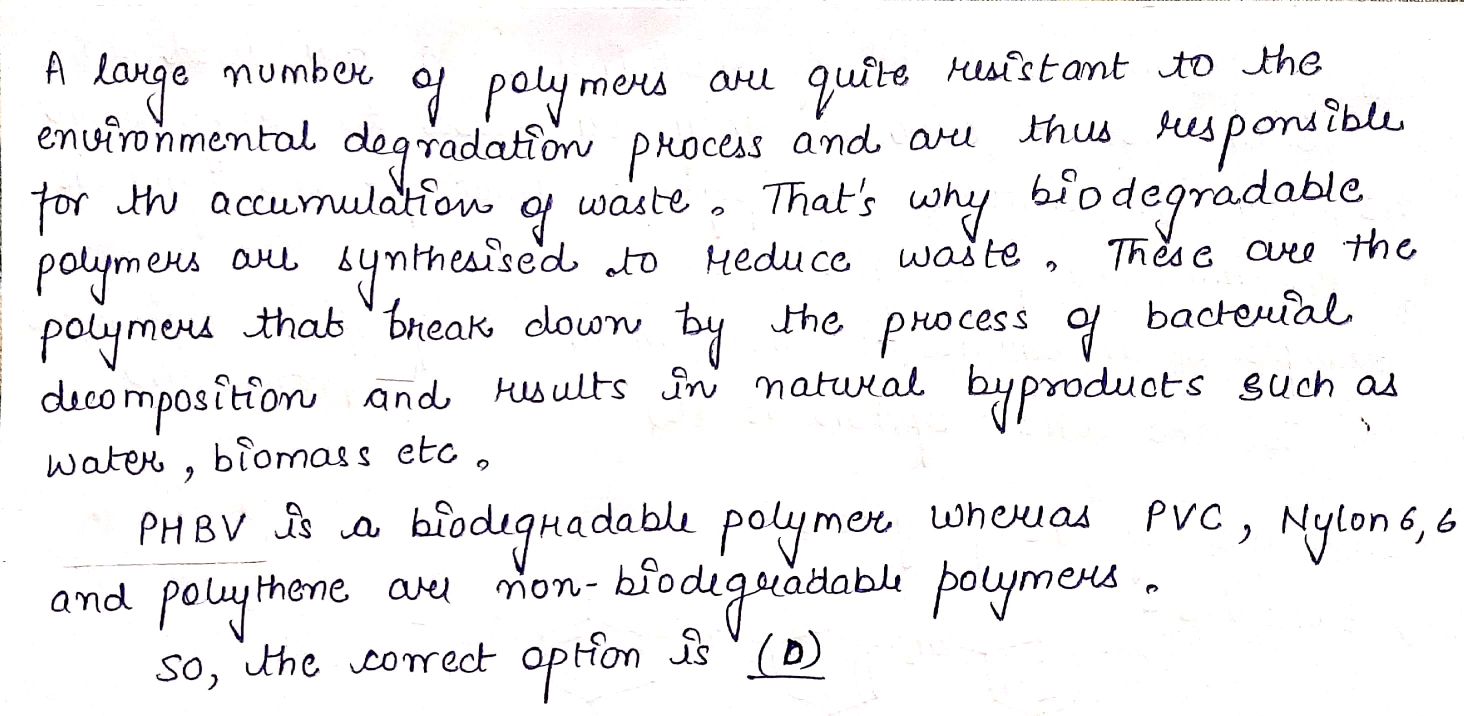 A large number of polymers are quite resistant to the
environmental degradation process and are thus responsible
for the accumulation of waste. That's why biodegradable
polymers are synthesised to reduce waste. These are the
polymers that break down by the process of bacterial
decomposition and results in natural byproducts such as
water, biomass etc.
PHBV is a biodegradable polymer whereas PVC, Nylon 6,6
and polythene are non-biodegradable polymers.
So, the correct option is (D)